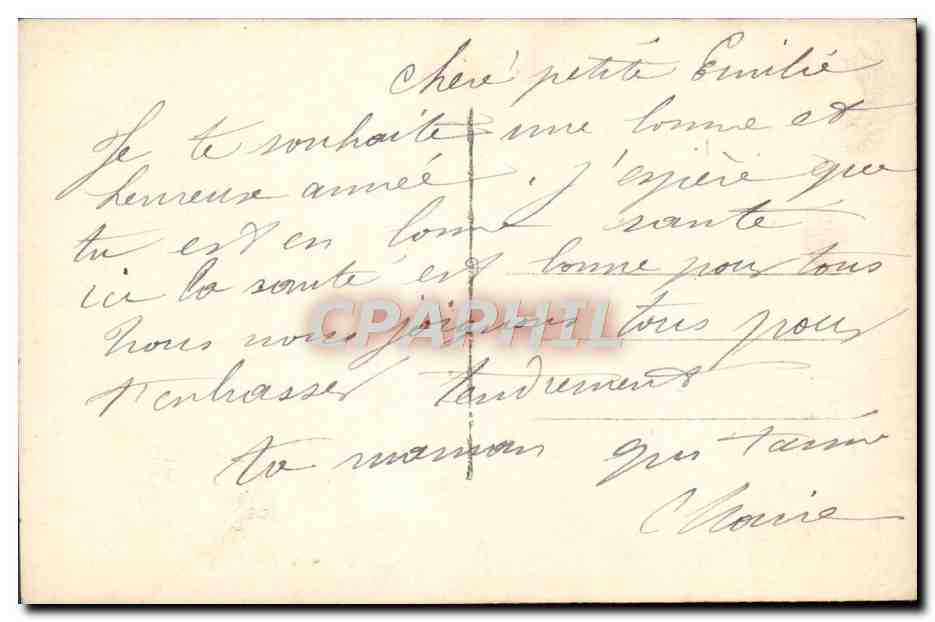 Cheré petité Emilié
Je te souhaite une bonne et
heureuse année. J'espère que
tu est en bonne santé
ici la santé est bonne pour tous
Nous nous joignons tous pour
t'enbrasser tendrement
ta maman qui t'aime
CPAPHIL